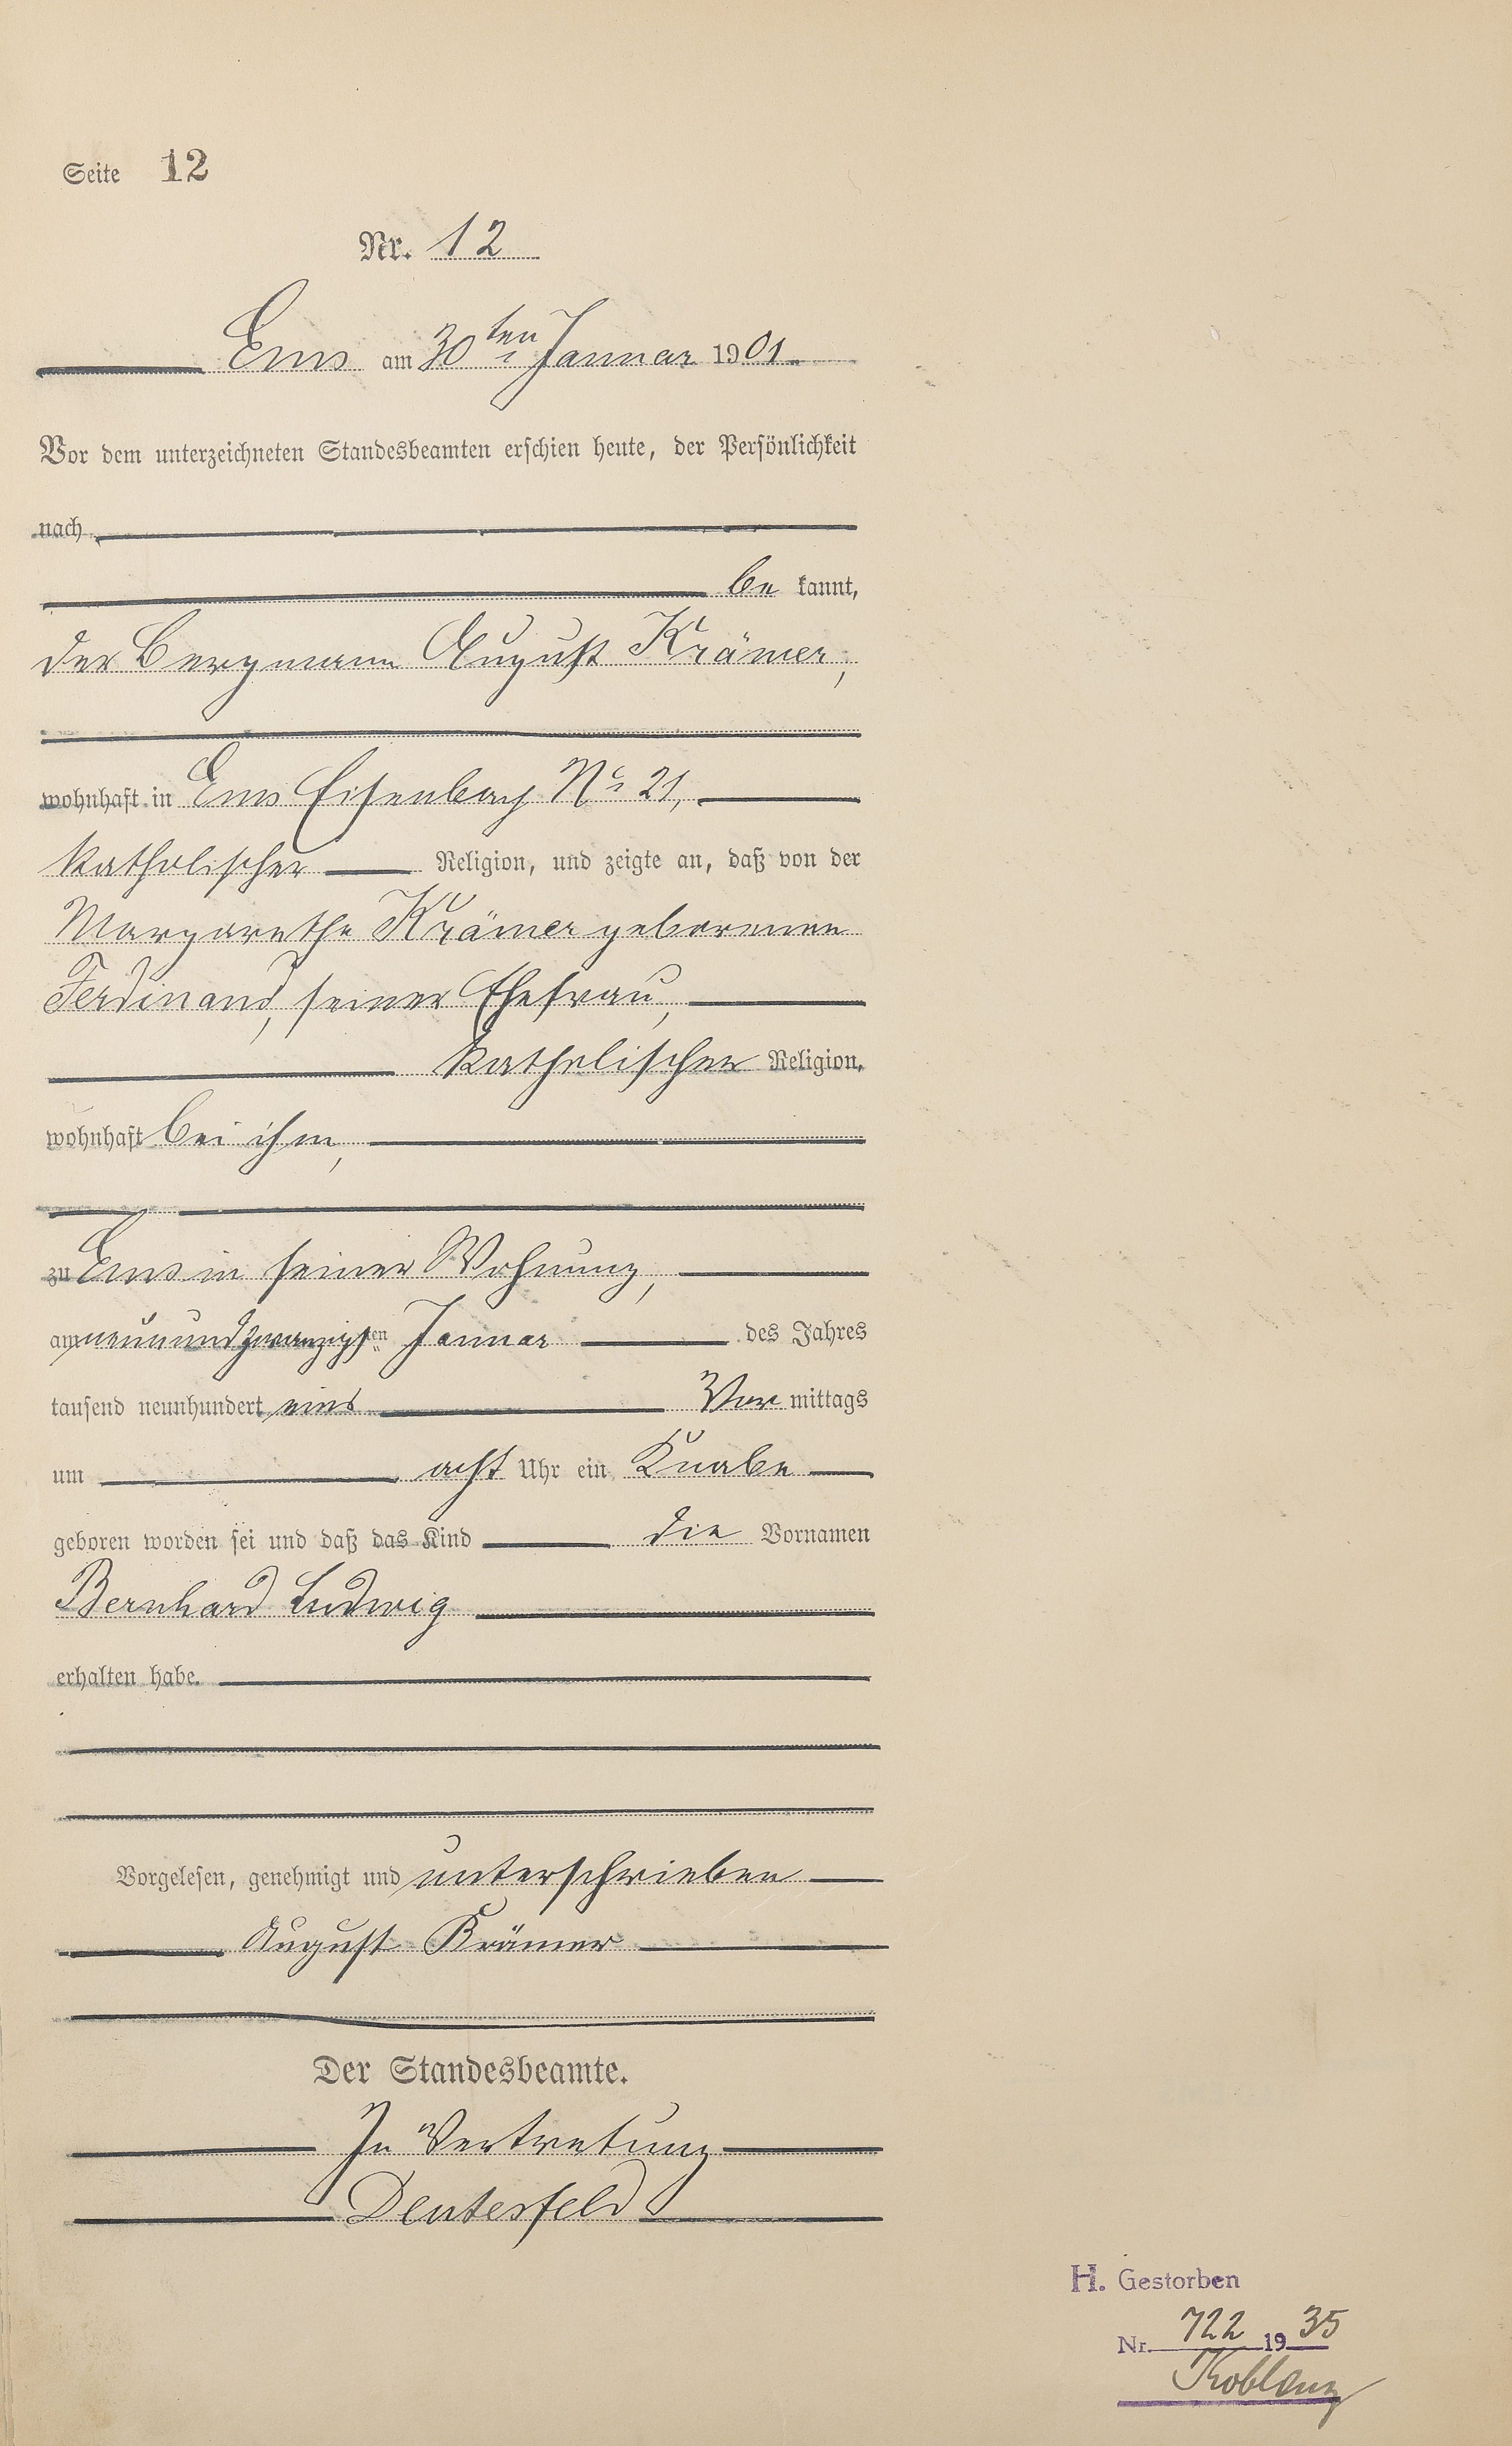 Seite 12
Nr. 12
Ems am 30ten Januar 1901
Vor dem unterzeichneten Standesbeamten erschien heute, der Persönlichkeit
nach
be kannt,
der Bergmann August Krämer,
wohnhaft in Ems Eisenbach No 21,
katholischer Religion, und zeigte an, daß von der
Margarethe Krämer geborenen
Ferdinand, seiner Ehefrau,
katholischer Religion,
wohnhaft bei ihm,
zu Ems in seiner Wohnung,
am neunundzwanzigsten Januar des Jahres
tausend neunhundert eins Vor mittags
um acht Uhr ein Knabe
geboren worden sei und daß das Kind die Vornamen
Bernhard Ludwig
erhalten habe.
Vorgelesen, genehmigt und unterschrieben
August Krämer
Der Standesbeamte.
In Vertretung
Deutesfeld
H. Gestorben
Nr. 722 1935
Koblenz